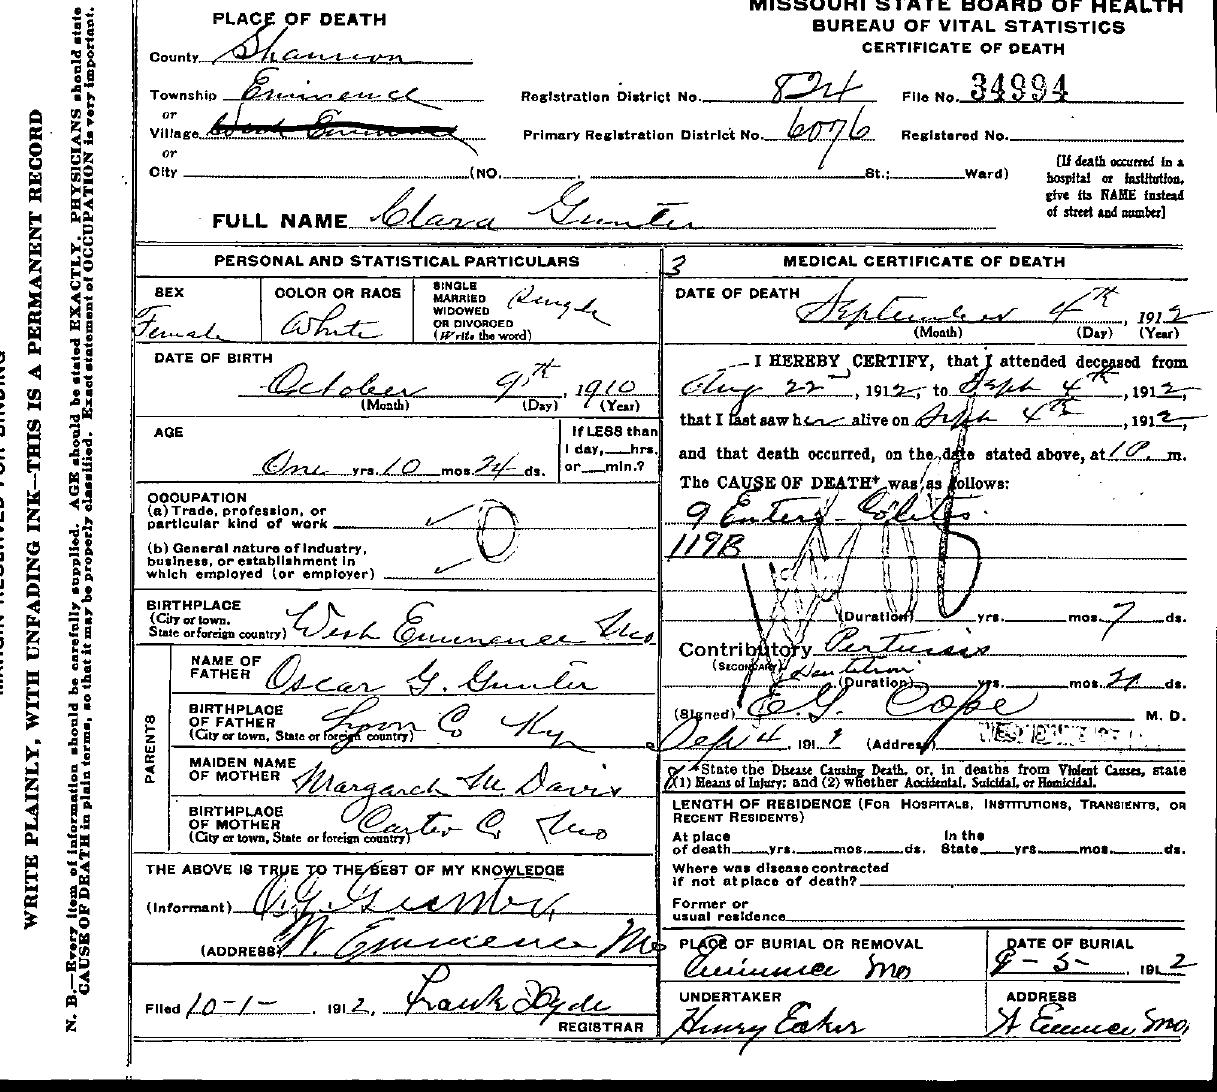 MISSOURI STATE BOARD OF HEALTH
BUREAU OF VITAL STATISTICS
CERTIFICATE OF DEATH
PLACE OF DEATH
County Shannon
Township Eminence
or
Village West Eminence
or
City (NO. St.; Ward)
Registration District No. 824 File No. 34994
Primary Registration District No. 6076 Registered No.
[If death occurred in a
hospital or institution,
give its NAME instead
of street and number]
FULL NAME Clara Gunter
PERSONAL AND STATISTICAL PARTICULARS
SEX
Female
COLOR OR RACE
White
SINGLE
MARRIED
WIDOWED
OR DIVORCED
(Write the word)
Single
DATE OF BIRTH
October 9th, 1910
(Month) (Day) (Year)
AGE
One yrs. 10 mos. 24 ds.
If LESS than
1 day, hrs.
or min.?
OCCUPATION
(a) Trade, profession, or
particular kind of work
(b) General nature of Industry,
business, or establishment in
which employed (or employer)
BIRTHPLACE
(City or town,
State or foreign country) West Eminence Mo
PARENTS
NAME OF
FATHER Oscar G. Gunter
BIRTHPLACE
OF FATHER
(City or town, State or foreign country) Lyon Co Ky
MAIDEN NAME
OF MOTHER Margaret M. Davis
BIRTHPLACE
OF MOTHER
(City or town, State or foreign country) Carter Co Mo
THE ABOVE IS TRUE TO THE BEST OF MY KNOWLEDGE
(Informant) O.G. Gunter,
(ADDRESS) W. Eminence Mo
Filed 10-1-, 1912, Frank Hyde
REGISTRAR
3
MEDICAL CERTIFICATE OF DEATH
DATE OF DEATH September 4th, 1912
(Month) (Day) (Year)
I HEREBY CERTIFY, that I attended deceased from
Aug 22nd, 1912, to Sept 4th, 1912,
that I last saw her alive on Sept 4th, 1912,
and that death occurred, on the date stated above, at 10 m.
The CAUSE OF DEATH* was as follows:
9 Entero-Colitis.
119B
(Duration) yrs. mos. 7 ds.
Contributory Pertussis
(SECONDARY) Dentition
(Duration) yrs. mos. 21 ds.
(Signed) E.G. Cope M. D.
Sept 4, 191 (Address)
*State the Disease Causing Death, or, in deaths from Violent Causes, state
(1) Means of Injury; and (2) whether Accidental, Suicidal, or Homicidal.
LENGTH OF RESIDENCE (FOR HOSPITALS, INSTITUTIONS, TRANSIENTS, OR
RECENT RESIDENTS)
At place In the
of death yrs. mos. ds. State yrs. mos. ds.
Where was disease contracted
if not at place of death?
Former or
usual residence
PLACE OF BURIAL OR REMOVAL
Eminence Mo
DATE OF BURIAL
9-5-, 1912
UNDERTAKER
Henry Eaker
ADDRESS
W Eminence Mo,
WRITE PLAINLY, WITH UNFADING INK—THIS IS A PERMANENT RECORD
N. B.—Every item of information should be carefully supplied. AGE should be stated EXACTLY. PHYSICIANS should state
CAUSE OF DEATH in plain terms, so that it may be properly classified. Exact statement of OCCUPATION is very important.